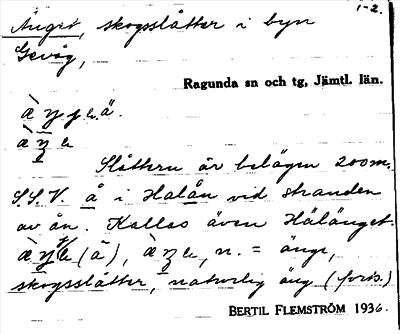 1-2.
Änget, skogsslåtter i byn
Gevåg,
Ragunda sn och tg, Jämtl. län.
Slåttern är belägen 200 m.
S.S.V. å i Halån vid stranden
av ån. Kallas även Hälänget.
(ä), n. = änge,
skogsslåtter, naturlig äng (forts.)
BERTIL FLEMSTRÖM 1936.